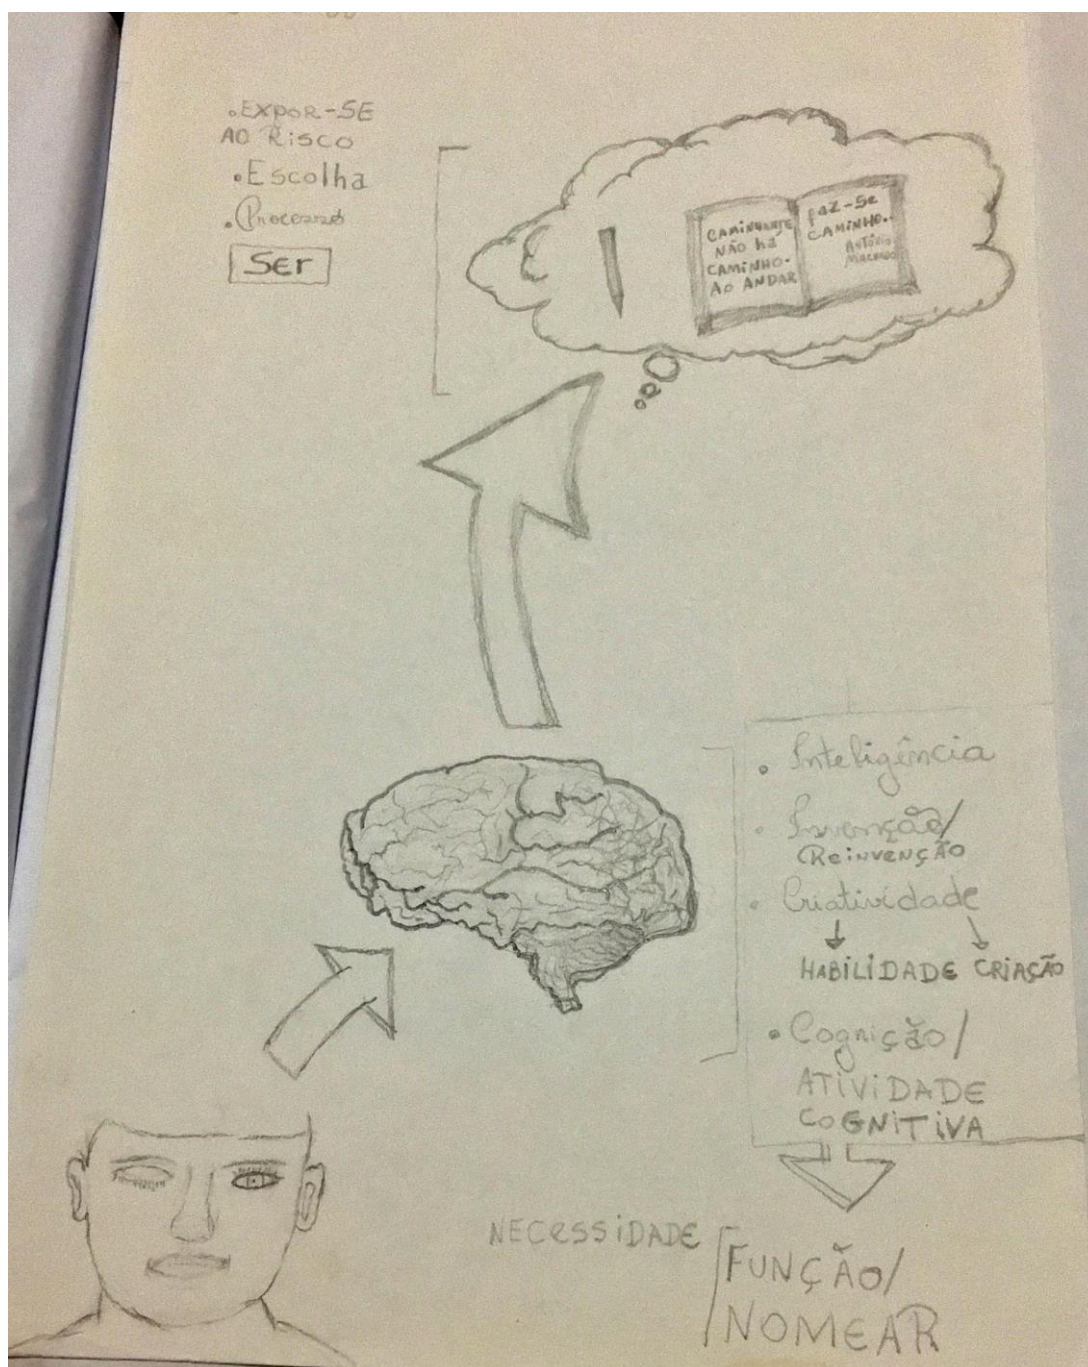 .EXPOR-SE
AO RiSCO
.Escolha
.Processo
Ser
CAMiNHANTE
NÃO há
CAMiNHO.
Ao ANDAR
faZ-Se
CAMiNHO..
António
Machado
. Inteligência
. Invenção/
ReinvenÇÃO
. Criatividade
HABiLiDADE CRiAÇÃO
. Cognição/
ATiViDADE
COGNiTiVA
NECeSSiDADE
FUNÇÃO/
NOMEAR